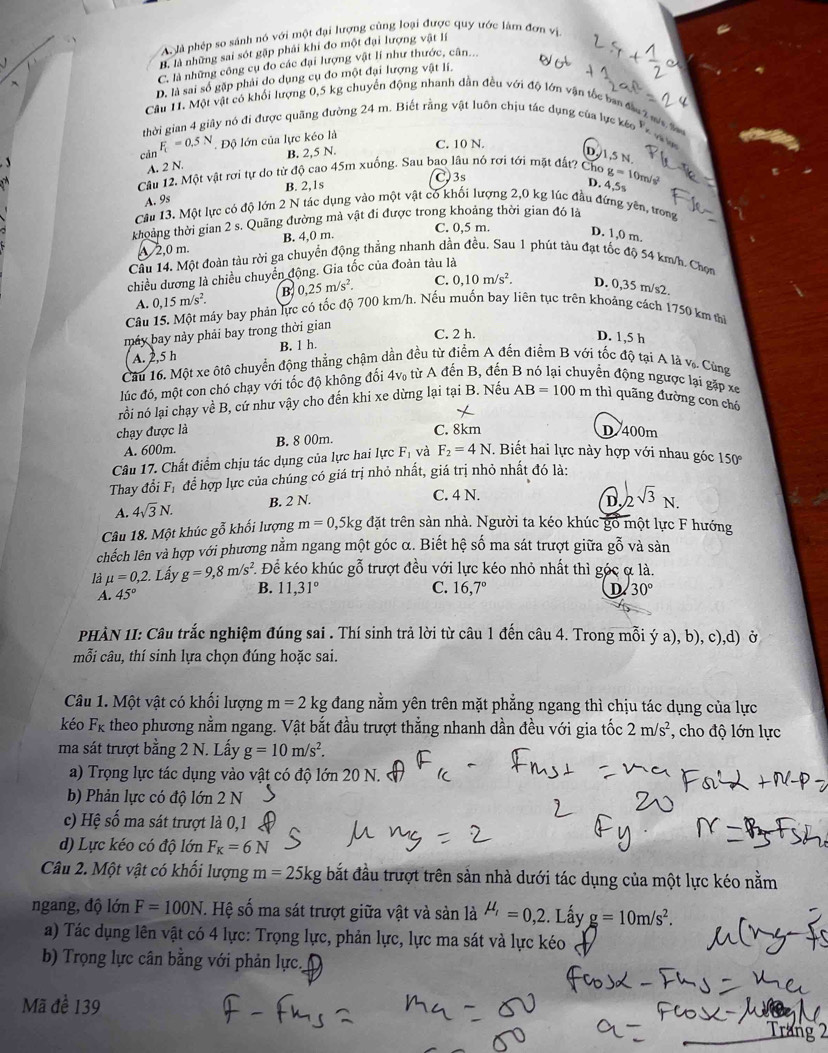 A. là phép so sánh nó với một đại lượng cùng loại được quy ước làm đơn vị.
B. là những sai sót gặp phải khi đo một đại lượng vật lí
C. là những công cụ đo các đại lượng vật lí như thước, cân...
D. là sai số gặp phải do dụng cụ đo một đại lượng vật lí.
Câu 11. Một vật có khối lượng 0,5 kg chuyển động nhanh dần đều với độ lớn vận tốc ban đầu 2 m/s. Sau
thời gian 4 giây nó đi được quãng đường 24 m. Biết rằng vật luôn chịu tác dụng của lực kéo
cản F = 0,5 N. Độ lớn của lực kéo là
A. 2 N. B. 2,5 N. C. 10 N. D. 1,5 N.
Câu 12. Một vật rơi tự do từ độ cao 45m xuống. Sau bao lâu nó rơi tới mặt đất? Cho g = 10m/s²
A. 9s B. 2,1s C. 3s D. 4,5s
Câu 13. Một lực có độ lớn 2 N tác dụng vào một vật có khối lượng 2,0 kg lúc đầu đứng yên, trong
khoảng thời gian 2 s. Quãng đường mà vật đi được trong khoảng thời gian đó là
A. 2,0 m. B. 4,0 m. C. 0,5 m. D. 1,0 m.
Câu 14. Một đoàn tàu rời ga chuyển động thẳng nhanh dần đều. Sau 1 phút tàu đạt tốc độ 54 km/h. Chọn
chiều dương là chiều chuyển động. Gia tốc của đoàn tàu là
A. 0,15 m/s². B. 0,25 m/s². C. 0,10 m/s². D. 0,35 m/s2.
Câu 15. Một máy bay phản lực có tốc độ 700 km/h. Nếu muốn bay liên tục trên khoảng cách 1750 km thì
máy bay này phải bay trong thời gian
A. 2,5 h B. 1 h. C. 2 h. D. 1,5 h
Câu 16. Một xe ôtô chuyển động thẳng chậm dần đều từ điểm A đến điểm B với tốc độ tại A là v₀. Cùng
lúc đó, một con chó chạy với tốc độ không đổi 4v₀ từ A đến B, đến B nó lại chuyển động ngược lại gặp xe
rồi nó lại chạy về B, cứ như vậy cho đến khi xe dừng lại tại B. Nếu AB = 100 m thì quãng đường con chó
chạy được là
A. 600m. B. 8 00m. C. 8km D. 400m
Câu 17. Chất điểm chịu tác dụng của lực hai lực F₁ và F₂ = 4 N. Biết hai lực này hợp với nhau góc 150°
Thay đổi F₁ để hợp lực của chúng có giá trị nhỏ nhất, giá trị nhỏ nhất đó là:
A. 4√3 N. B. 2 N. C. 4 N. D. 2√3 N.
Câu 18. Một khúc gỗ khối lượng m = 0,5kg đặt trên sàn nhà. Người ta kéo khúc gỗ một lực F hướng
chếch lên và hợp với phương nằm ngang một góc α. Biết hệ số ma sát trượt giữa gỗ và sàn
là μ = 0,2. Lấy g = 9,8 m/s². Để kéo khúc gỗ trượt đều với lực kéo nhỏ nhất thì góc α là.
A. 45° B. 11,31° C. 16,7° D. 30°
PHẦN 1I: Câu trắc nghiệm đúng sai . Thí sinh trả lời từ câu 1 đến câu 4. Trong mỗi ý a), b), c),d) ở
mỗi câu, thí sinh lựa chọn đúng hoặc sai.
Câu 1. Một vật có khối lượng m = 2 kg đang nằm yên trên mặt phẳng ngang thì chịu tác dụng của lực
kéo Fₖ theo phương nằm ngang. Vật bắt đầu trượt thẳng nhanh dần đều với gia tốc 2 m/s², cho độ lớn lực
ma sát trượt bằng 2 N. Lấy g = 10 m/s².
a) Trọng lực tác dụng vào vật có độ lớn 20 N.
b) Phản lực có độ lớn 2 N S
c) Hệ số ma sát trượt là 0,1
d) Lực kéo có độ lớn Fₖ = 6 N S μmg = 2
Câu 2. Một vật có khối lượng m = 25kg bắt đầu trượt trên sàn nhà dưới tác dụng của một lực kéo nằm
ngang, độ lớn F = 100N. Hệ số ma sát trượt giữa vật và sàn là μₜ = 0,2. Lấy g = 10m/s².
a) Tác dụng lên vật có 4 lực: Trọng lực, phản lực, lực ma sát và lực kéo
b) Trọng lực cân bằng với phản lực.
Fcosα - Fms = ma
F - Fms = ma = 50
Mã đề 139
Trang 2